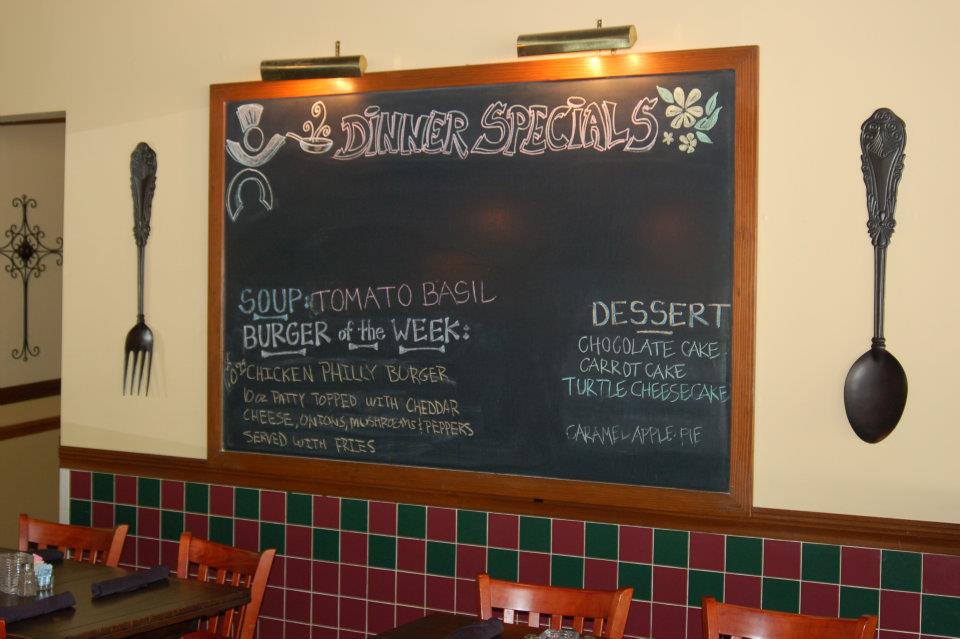 DINNER SPECIALS
SOUP: TOMATO BASIL
BURGER of the WEEK:
CHICKEN PHILLY BURGER
10 oz PATTY TOPPED WITH CHEDDAR
CHEESE, ONIONS, MUSHROOMS & PEPPERS
SERVED WITH FRIES
DESSERT
CHOCOLATE CAKE
CARROT CAKE
TURTLE CHEESECAKE
CARAMEL APPLE PIE